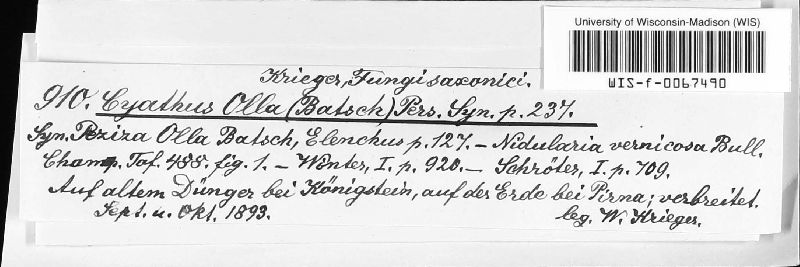 University of Wisconsin-Madison (WIS)
WIS-f-0067490
Krieger, Fungi saxonici.
910. Cyathus Olla (Batsch) Pers. Syn. p. 237.
Syn. Peziza Olla Batsch, Elenchus p. 127. – Nidularia vernicosa Bull.
Champ. Taf. 488. fig. 1. – Winter, I. p. 920. – Schröter, I. p. 709.
Auf altem Dünger bei Königstein, auf der Erde bei Pirna; verbreitet.
Sept. u. Okt. 1893.
leg. W. Krieger.